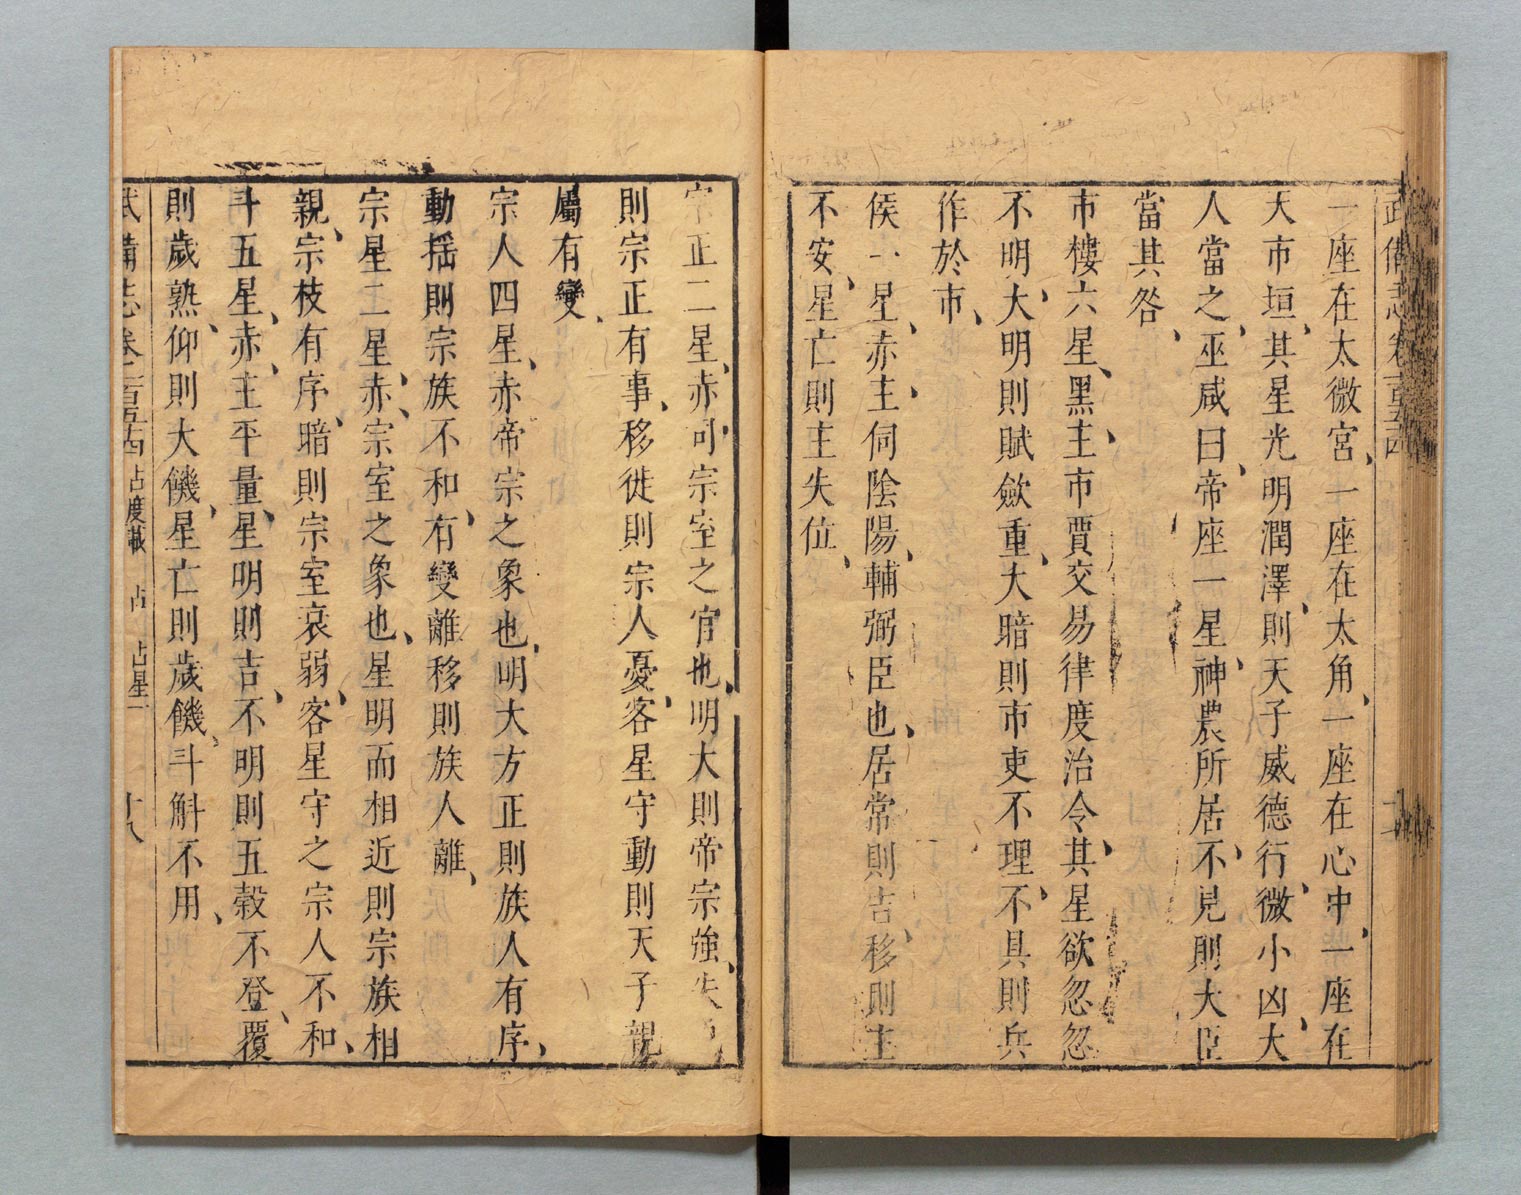 武備志卷一百五十四
一座在太微宮、一座在太角、一座在心中、一座在
天市垣、其星光明潤澤、則天子威德行、微小凶、大
人當之、巫咸曰、帝座一星、神農所居、不見則大臣
當其咎、
市樓六星、黑、主市賈交易律度治令、其星欲忽忽
不明、大、明則賦斂重、大暗則市吏不理、不具則兵
作於市、
侯一星、赤、主伺陰陽、輔弼臣也、居常則吉、移則主
不安、星亡則主失位、
宗正二星、赤、司宗室之官也、明大則帝宗強、失
則宗正有事、移徙則宗人憂、客星守動則天子親
屬有變、
宗人四星、赤、帝宗之象也、明大方正則族人有序、
動搖則宗族不和、有變離移則族人離、
宗星二星、赤、宗室之象也、星明而相近則宗族相
親、宗枝有序、暗則宗室衰弱、客星守之宗人不和、
斗五星、赤、主平量、星明則吉、不明則五穀不登、覆
則歲熟、仰則大饑、星亡則歲饑、斗斛不用、
武備志卷一百五十四 占度載 占 占星二 十八